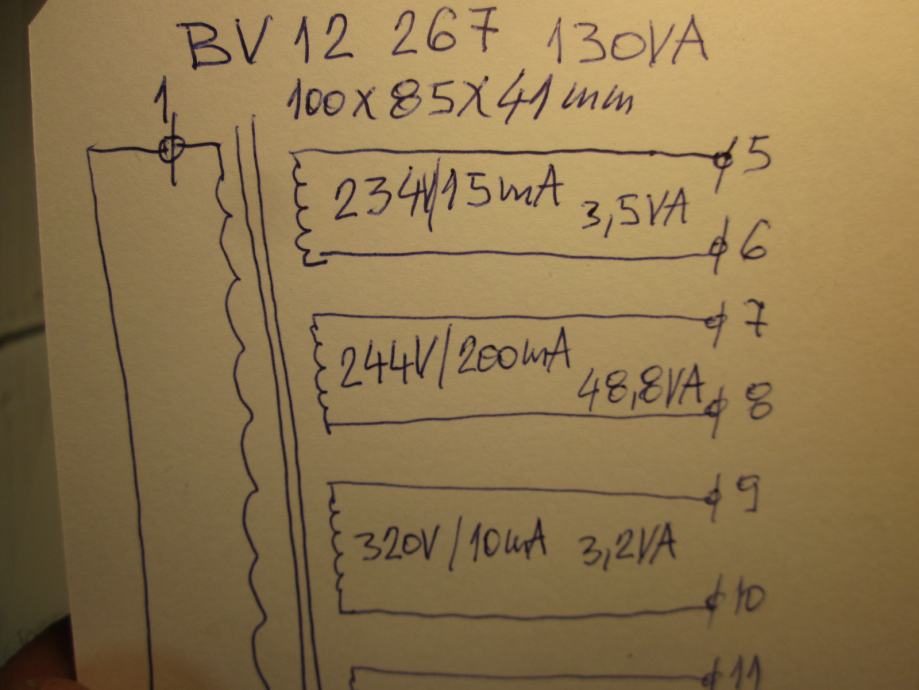 BV 12 267 130VA
1
100x85x41mm
5
234V/15mA 3,5VA
6
7
244V/200mA
48,8VA
8
9
320V/10mA 3,2VA
10
11